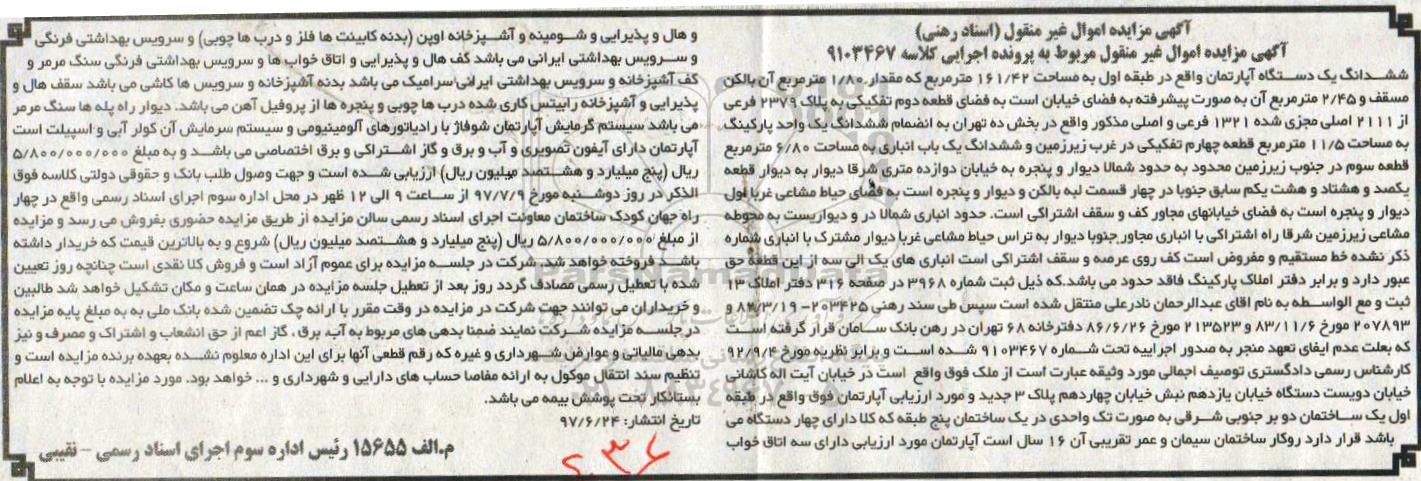 آگهی مزایده اموال غیر منقول (اسناد رهنی)
آگهی مزایده اموال غیر منقول مربوط به پرونده اجرایی کلاسه ۹۱۰۳۴۶۷
ششدانگ یک دستگاه آپارتمان واقع در طبقه اول به مساحت ۱۶۱/۴۲ مترمربع که مقدار ۱/۸۰ مترمربع آن بالکن
مسقف و ۲/۴۵ مترمربع آن به صورت پیشرفته به فضای خیابان است به فضای قطعه دوم تفکیکی به پلاک ۲۳۷۹ فرعی
از ۲۱۱۱ اصلی مجزی شده ۱۳۲۱ فرعی و اصلی مذکور واقع در بخش ده تهران به انضمام ششدانگ یک واحد پارکینگ
به مساحت ۱۱/۵ مترمربع قطعه چهارم تفکیکی در غرب زیرزمین و ششدانگ یک باب انباری به مساحت ۶/۸۰ مترمربع
قطعه سوم در جنوب زیرزمین محدود به حدود شمالا دیوار و پنجره به خیابان دوازده متری شرقا دیوار به دیوار قطعه
یکصد و هشتاد و هشت یکم سابق جنوبا در چهار قسمت لبه بالکن و دیوار و پنجره است به فضای حیاط مشاعی غربا اول
دیوار و پنجره است به فضای خیابانهای مجاور کف و سقف اشتراکی است. حدود انباری شمالا در و دیواریست به محوطه
مشاعی زیرزمین شرقا راه اشتراکی با انباری مجاور جنوبا دیوار به تراس حیاط مشاعی غربا دیوار مشترک با انباری شماره
ذکر نشده خط مستقیم و مفروض است کف روی عرصه و سقف اشتراکی است انباری های یک الی سه از این قطعه حق
عبور دارد و برابر دفتر املاک پارکینگ فاقد حدود می باشد.که ذیل ثبت شماره ۳۹۶۸ در صفحه ۳۱۶ دفتر املاک ۱۳
ثبت و مع الواسطه به نام اقای عبدالرحمان نادرعلی منتقل شده است سپس طی سند رهنی ۲۰۳۴۲۵-۸۳/۳/۱۹
۲۰۷۸۹۳ مورخ ۸۳/۱۱/۶ و ۲۱۳۵۲۳ مورخ ۸۶/۶/۲۶ دفترخانه ۶۸ تهران در رهن بانک سامان قرار گرفته است
که بعلت عدم ایفای تعهد منجر به صدور اجراییه تحت شماره ۹۱۰۳۴۶۷ شده است و برابر نظریه مورخ ۹۲/۹/۴
کارشناس رسمی دادگستری توصیف اجمالی مورد وثیقه عبارت است از ملک فوق واقع است در خیابان آیت اله کاشانی
خیابان دویست دستگاه خیابان یازدهم نبش خیابان چهاردهم پلاک ۳ جدید و مورد ارزیابی آپارتمان فوق واقع در طبقه
اول یک ساختمان دو بر جنوبی شرقی به صورت تک واحدی در یک ساختمان پنج طبقه که کلا دارای چهار دستگاه می
باشد قرار دارد روکار ساختمان سیمان و عمر تقریبی آن ۱۶ سال است آپارتمان مورد ارزیابی دارای سه اتاق خواب
و هال و پذیرایی و شومینه و آشپزخانه اوپن (بدنه کابینت ها فلز و درب ها چوبی) و سرویس بهداشتی فرنگی
و سرویس بهداشتی ایرانی می باشد کف هال و پذیرایی و اتاق خواب ها و سرویس بهداشتی فرنگی سنگ مرمر و
کف آشپزخانه و سرویس بهداشتی ایرانی سرامیک می باشد بدنه آشپزخانه و سرویس ها کاشی می باشد سقف هال و
پذیرایی و آشپزخانه رابیتس کاری شده درب ها چوبی و پنجره ها از پروفیل آهن می باشد. دیوار راه پله ها سنگ مرمر
می باشد سیستم گرمایش آپارتمان شوفاژ با رادیاتورهای آلومینیومی و سیستم سرمایش آن کولر آبی و اسپیلت است
آپارتمان دارای آیفون تصویری و آب و برق و گاز اشتراکی و برق اختصاصی می باشد و به مبلغ ۵/۸۰۰/۰۰۰/۰۰۰
ریال (پنج میلیارد و هشتصد میلیون ریال) ارزیابی شده است و جهت وصول طلب بانک و حقوقی دولتی کلاسه فوق
الذکر در روز دوشنبه مورخ ۹۷/۷/۹ از ساعت ۹ الی ۱۲ ظهر در محل اداره سوم اجرای اسناد رسمی واقع در چهار
راه جهان کودک ساختمان معاونت اجرای اسناد رسمی سالن مزایده از طریق مزایده حضوری بفروش می رسد و مزایده
از مبلغ ۵/۸۰۰/۰۰۰/۰۰۰ ریال (پنج میلیارد و هشتصد میلیون ریال) شروع و به بالاترین قیمت که خریدار داشته
باشد فروخته خواهد شد. شرکت در جلسه مزایده برای عموم آزاد است و فروش کلا نقدی است چنانچه روز تعیین
شده با تعطیل رسمی مصادف گردد روز بعد از تعطیل جلسه مزایده در همان ساعت و مکان تشکیل خواهد شد طالبین
و خریداران می توانند جهت شرکت در مزایده در وقت مقرر با ارائه چک تضمین شده بانک ملی به به مبلغ پایه مزایده
در جلسه مزایده شرکت نمایند ضمنا بدهی های مربوط به آب، برق، گاز اعم از حق انشعاب و اشتراک و مصرف و نیز
بدهی مالیاتی و عوارض شهرداری و غیره که رقم قطعی آنها برای این اداره معلوم نشده بعهده برنده مزایده است و
تنظیم سند انتقال موکول به ارائه مفاصا حساب های دارایی و شهرداری و ... خواهد بود. مورد مزایده با توجه به اعلام
بستانکار تحت پوشش بیمه می باشد.
تاریخ انتشار: ۹۷/۶/۲۴
م.الف ۱۵۶۵۵ رئیس اداره سوم اجرای اسناد رسمی - نقیبی
ParsNamadData